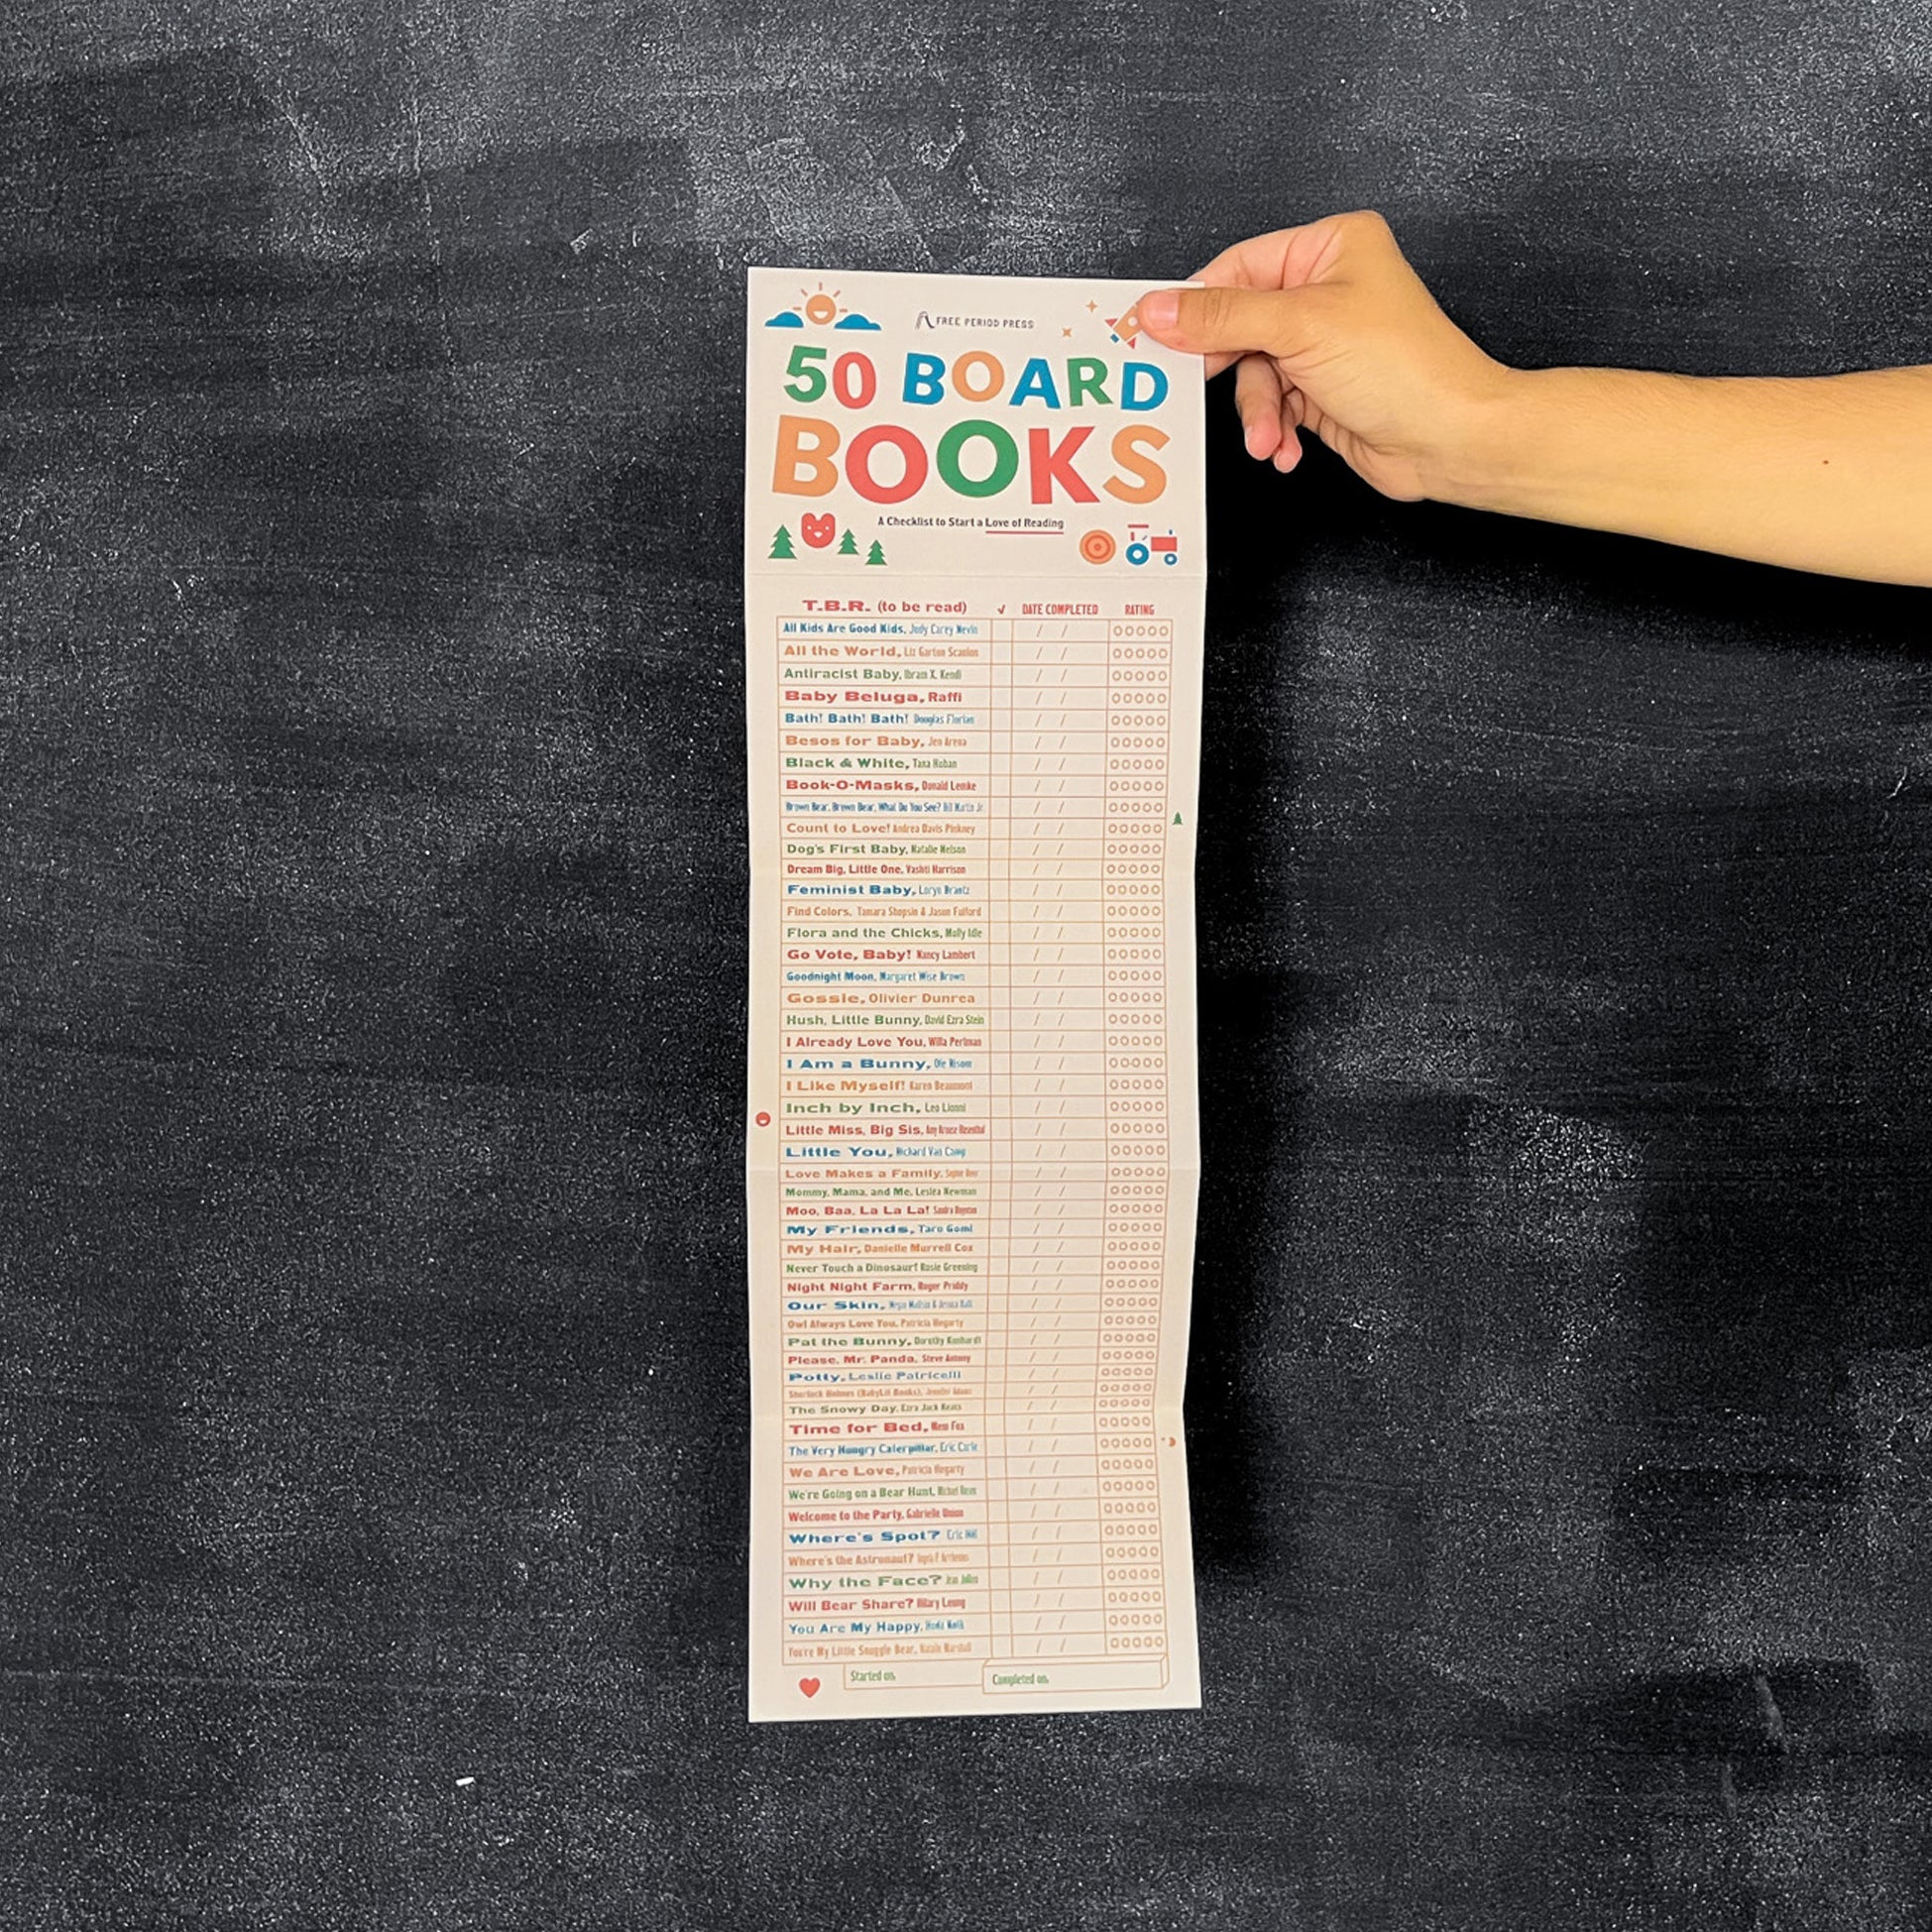 FREE PERIOD PRESS
50 BOARD
BOOKS
A Checklist to Start a Love of Reading
T.B.R. (to be read) ✓ DATE COMPLETED RATING
All Kids Are Good Kids, Judy Carey Nevin / /
All the World, Liz Garton Scanlon / /
Antiracist Baby, Ibram X. Kendi / /
Baby Beluga, Raffi / /
Bath! Bath! Bath! Douglas Florian / /
Besos for Baby, Jen Arena / /
Black & White, Tana Hoban / /
Book-O-Masks, Donald Lemke / /
Brown Bear, Brown Bear, What Do You See? Bill Martin Jr. / /
Count to Love! Andrea Davis Pinkney / /
Dog's First Baby, Natalie Nelson / /
Dream Big, Little One, Vashti Harrison / /
Feminist Baby, Loryn Brantz / /
Find Colors, Tamara Shopsin & Jason Fulford / /
Flora and the Chicks, Molly Idle / /
Go Vote, Baby! Nancy Lambert / /
Goodnight Moon, Margaret Wise Brown / /
Gossie, Olivier Dunrea / /
Hush, Little Bunny, David Ezra Stein / /
I Already Love You, Willa Perlman / /
I Am a Bunny, Ole Risom / /
I Like Myself! Karen Beaumont / /
Inch by Inch, Leo Lionni / /
Little Miss, Big Sis, Amy Krouse Rosenthal / /
Little You, Richard Van Camp / /
Love Makes a Family, Sophie Beer / /
Mommy, Mama, and Me, Lesléa Newman / /
Moo, Baa, La La La! Sandra Boynton / /
My Friends, Taro Gomi / /
My Hair, Danielle Murrell Cox / /
Never Touch a Dinosaur! Rosie Greening / /
Night Night Farm, Roger Priddy / /
Our Skin, Megan Madison & Jessica Ralli / /
Owl Always Love You, Patricia Hegarty / /
Pat the Bunny, Dorothy Kunhardt / /
Please, Mr. Panda, Steve Antony / /
Potty, Leslie Patricelli / /
Sherlock Holmes (BabyLit Books), Jennifer Adams / /
The Snowy Day, Ezra Jack Keats / /
Time for Bed, Mem Fox / /
The Very Hungry Caterpillar, Eric Carle / /
We Are Love, Patricia Hegarty / /
We're Going on a Bear Hunt, Michael Rosen / /
Welcome to the Party, Gabrielle Union / /
Where's Spot? Eric Hill / /
Where's the Astronaut? / /
Why the Face? Jean Jullien / /
Will Bear Share? Hilary Leung / /
You Are My Happy, Hoda Kotb / /
You're My Little Snuggle Bear, Natalie Marshall / /
Started on:
Completed on: